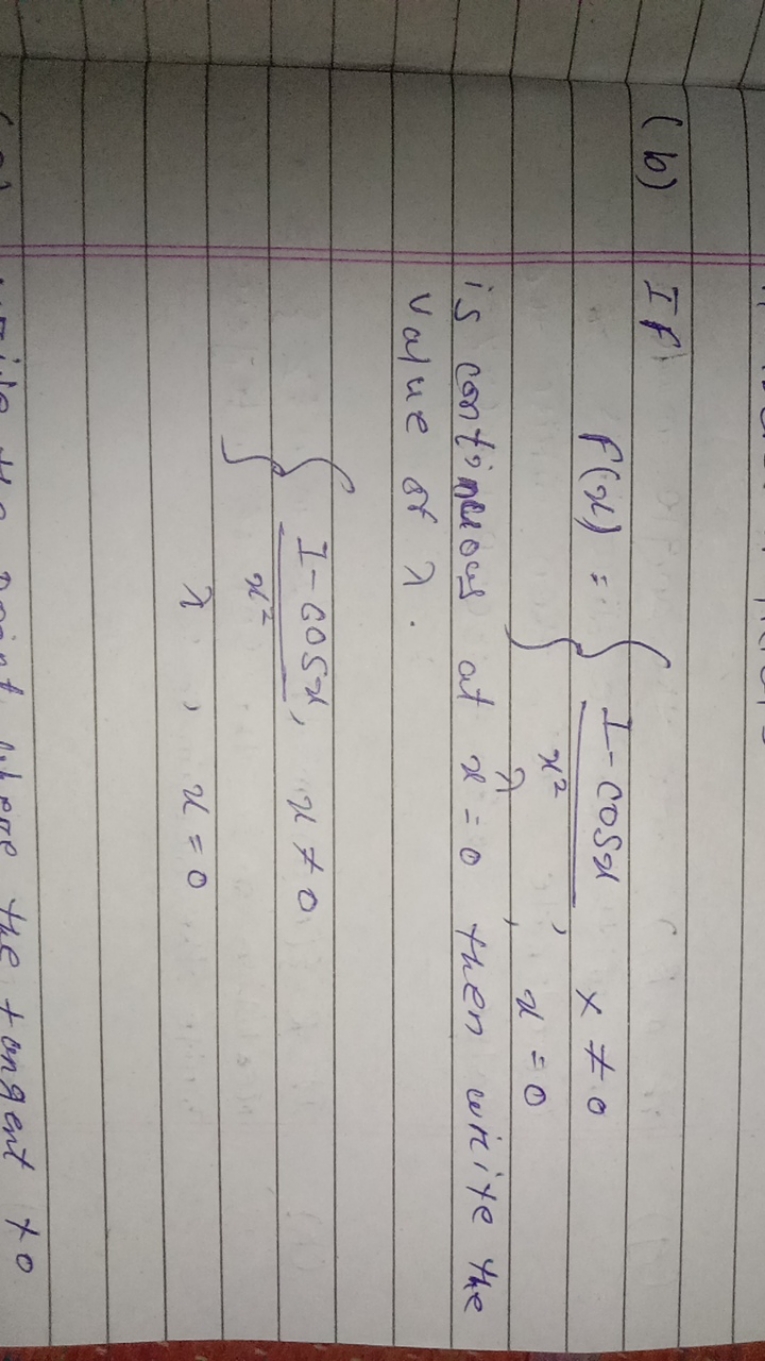 (b) If
f(x) = { I-cosx / x² , x ≠ 0
λ , x = 0
is continuous at x = 0 then write the
value of λ.
{ I-cosx / x² , x ≠ 0
λ , x = 0
the point where the tangent to